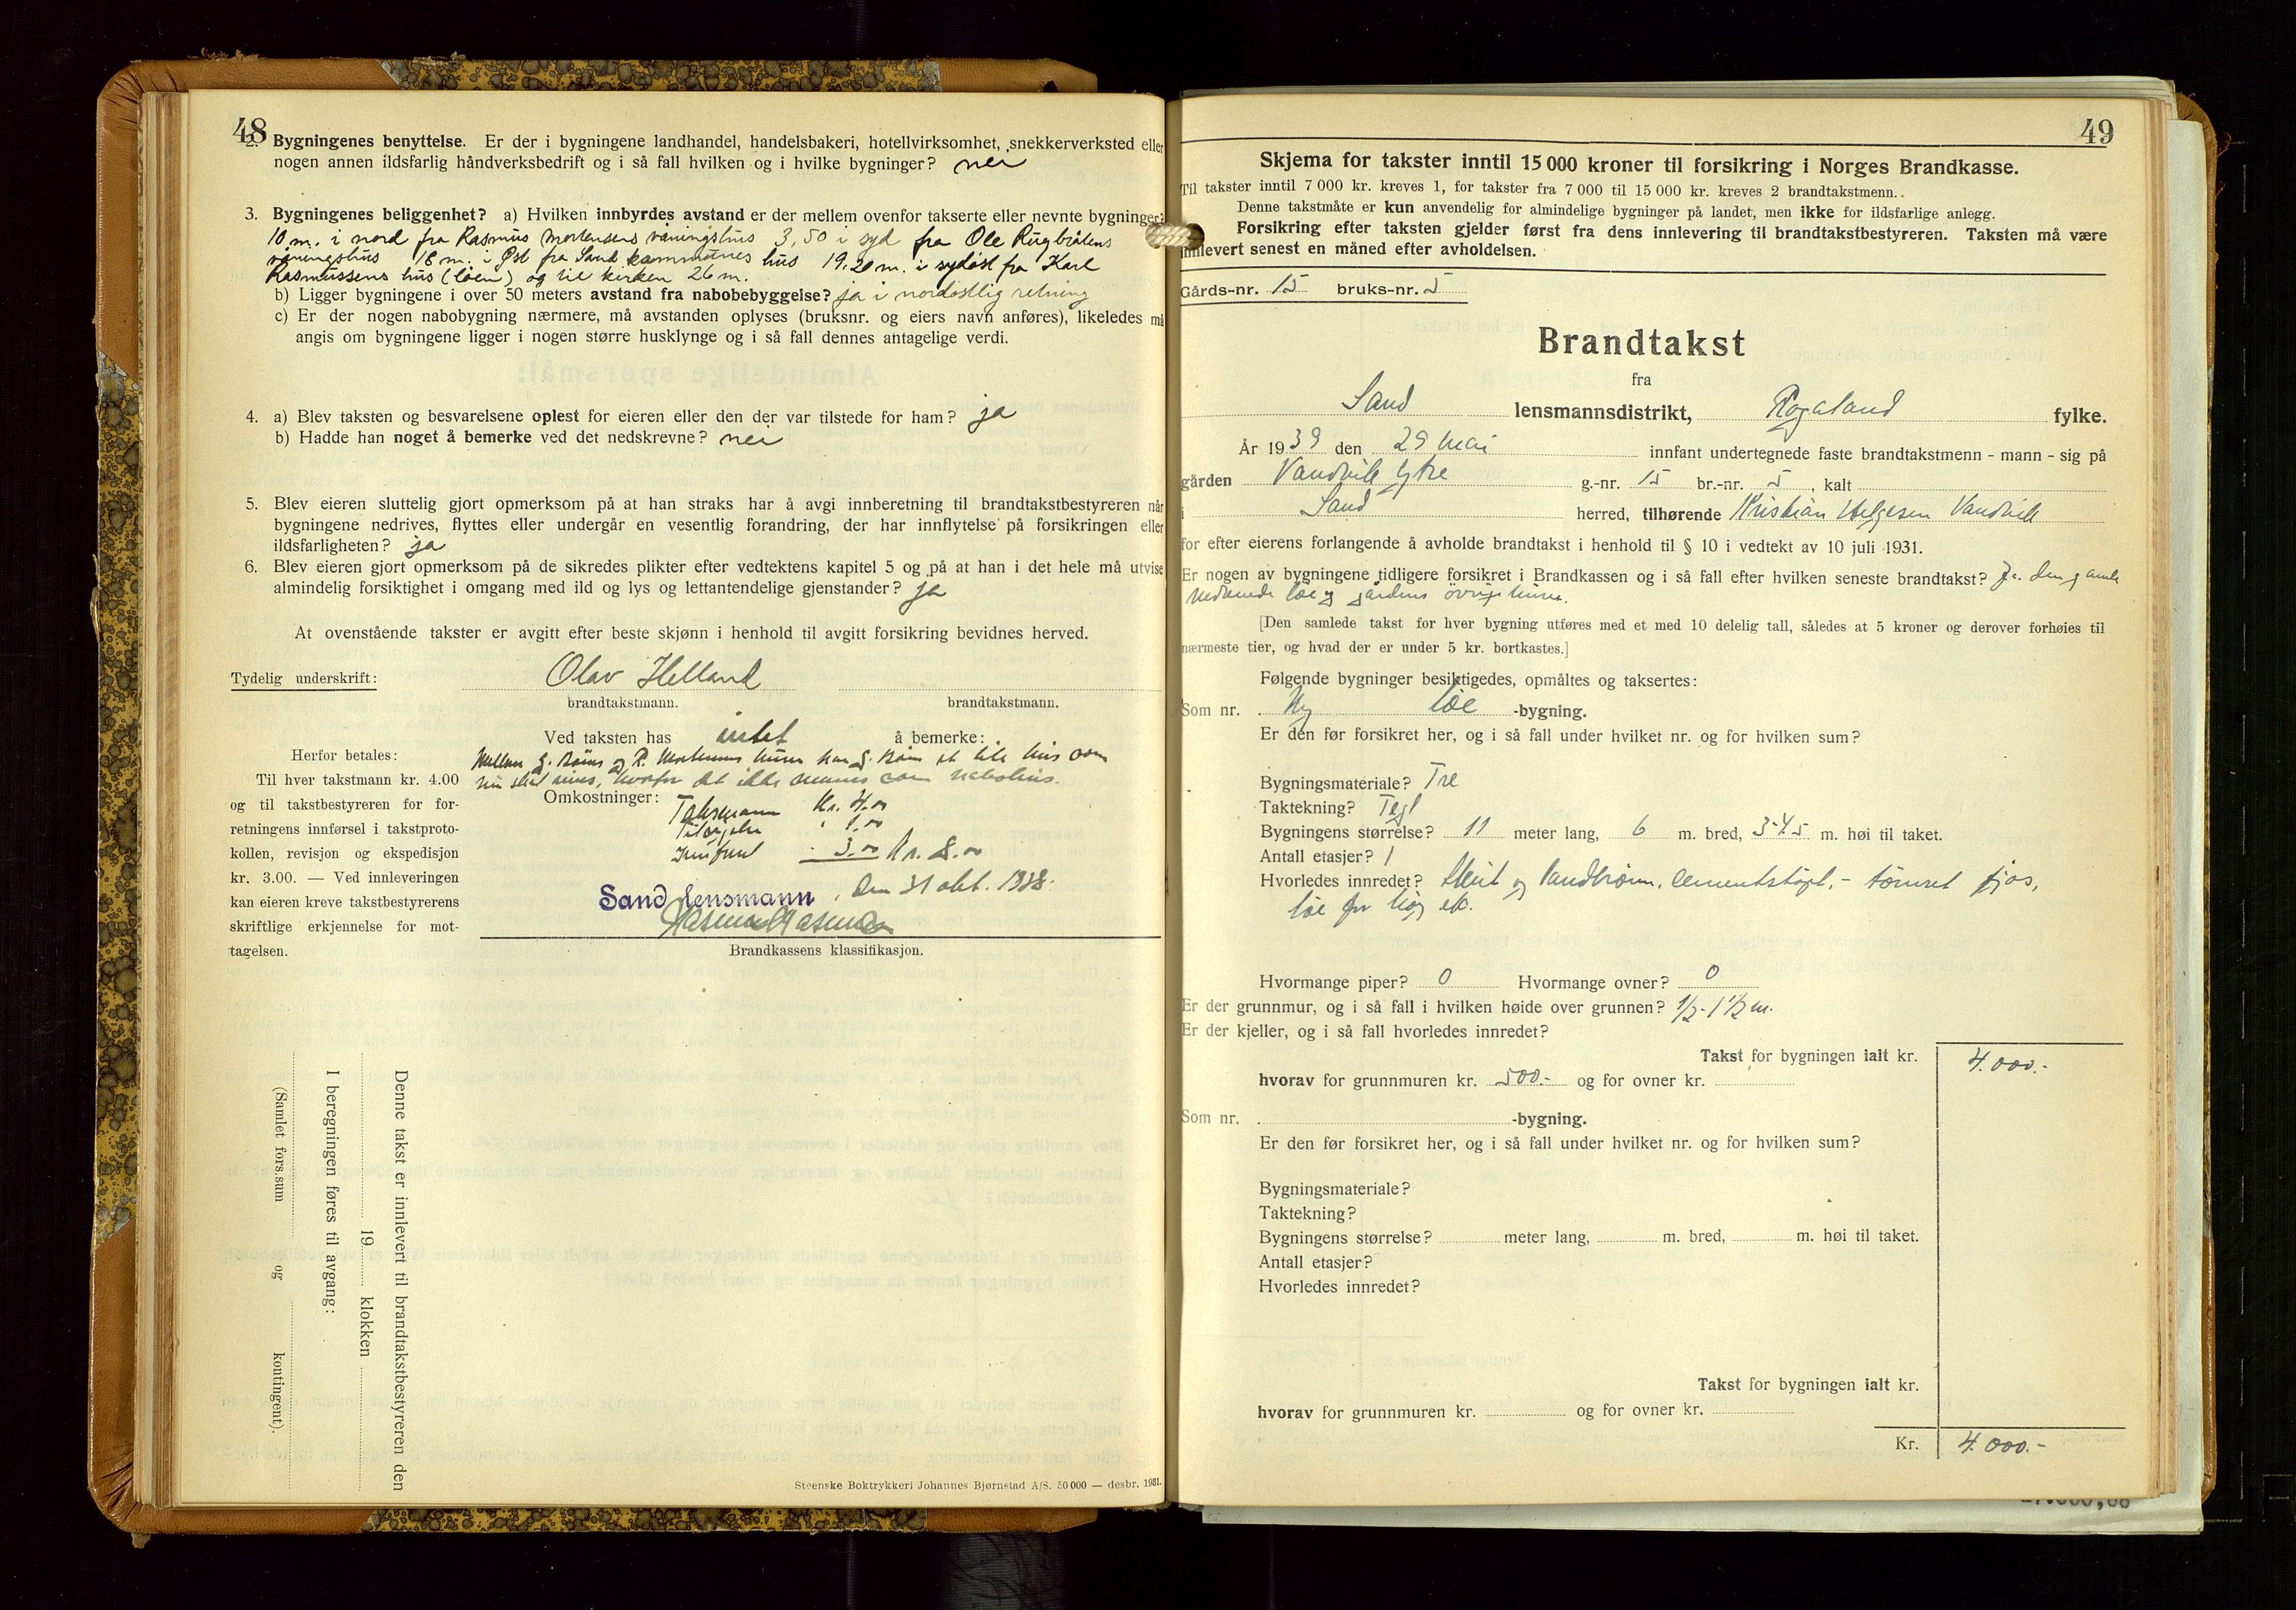 48
2. Bygningenes benyttelse. Er der i bygningene landhandel, handelsbakeri, hotellvirksomhet, snekkerverksted eller
nogen annen ildsfarlig håndverksbedrift og i så fall hvilken og i hvilke bygninger? nei
3. Bygningenes beliggenhet? a) Hvilken innbyrdes avstand er der mellem ovenfor takserte eller nevnte bygninger:
10 m. i nord fra Rasmus Mortensens våningshus 3,50 i syd fra Ole
våningshus 18 m. i Øst fra Sand kommunes hus 19,20 m. i sydöst fra Karl
Rasmussens hus (löen) og til kirken 26 m.
b) Ligger bygningene i over 50 meters avstand fra nabobebyggelse? ja i nordöstlig retning
c) Er der nogen nabobygning nærmere, må avstanden oplyses (bruksnr. og eiers navn anføres), likeledes må
angis om bygningene ligger i nogen større husklynge og i så fall dennes antagelige verdi.
4. a) Blev taksten og besvarelsene oplest for eieren eller den der var tilstede for ham? ja
b) Hadde han noget å bemerke ved det nedskrevne? nei
5. Blev eieren sluttelig gjort opmerksom på at han straks har å avgi innberetning til brandtakstbestyreren når
bygningene nedrives, flyttes eller undergår en vesentlig forandring, der har innflytelse på forsikringen eller
ildsfarligheten? ja
6. Blev eieren gjort opmerksom på de sikredes plikter efter vedtektens kapitel 5 og på at han i det hele må utvise
almindelig forsiktighet i omgang med ild og lys og lettantendelige gjenstander? ja
At ovenstående takster er avgitt efter beste skjønn i henhold til avgitt forsikring bevidnes herved.
Tydelig underskrift: Olav Helland
brandtakstmann. brandtakstmann.
Ved taksten has intet å bemerke:
Mellem S. og R. Mortensens huse har S. et lite hus som
nu skal rives, hvorfor det ikke nevnes som nabohus.
Herfor betales:
Til hver takstmann kr. 4.00
og til takstbestyreren for for-
retningens innførsel i takstproto-
kollen, revisjon og ekspedisjon
kr. 3.00. — Ved innleveringen
kan eieren kreve takstbestyrerens
skriftlige erkjennelse for mot-
tagelsen.
Omkostninger: Takstmann Kr. 4.00
1.00
Innførsel 3.00 Kr. 8.00
Sand lensmann, den 31 okt. 1938.
Brandkassens klassifikasjon.
Denne takst er innlevert til brandtakstbestyreren den
19 klokken
I beregningen føres til avgang:
(Samlet fors.sum og kontingent).
Steenske Boktrykkeri Johannes Bjørnstad A/S. 50 000 — desbr. 1931.
49
Skjema for takster inntil 15 000 kroner til forsikring i Norges Brandkasse.
Til takster inntil 7 000 kr. kreves 1, for takster fra 7 000 til 15 000 kr. kreves 2 brandtakstmenn.
Denne takstmåte er kun anvendelig for almindelige bygninger på landet, men ikke for ildsfarlige anlegg.
Forsikring efter taksten gjelder først fra dens innlevering til brandtakstbestyreren. Taksten må være
innlevert senest en måned efter avholdelsen.
Gårds-nr. 15 bruks-nr. 5
Brandtakst
fra
Sand lensmannsdistrikt, Rogaland fylke.
År 1939 den 29 Mai innfant undertegnede faste brandtakstmenn - mann - sig på
gården Vandvik ytre g.-nr. 15 br.-nr. 5, kalt
i Sand herred, tilhørende Kristian Helgesen Vandvik
for efter eierens forlangende å avholde brandtakst i henhold til § 10 i vedtekt av 10 juli 1931.
Er nogen av bygningene tidligere forsikret i Brandkassen og i så fall efter hvilken seneste brandtakst? Ja. den gamle
löe og gårdens övrige huse.
[Den samlede takst for hver bygning utføres med et med 10 delelig tall, således at 5 kroner og derover forhøies til
nærmeste tier, og hvad der er under 5 kr. bortkastes.]
Følgende bygninger besiktigedes, opmåltes og taksertes:
Som nr. Ny löe -bygning.
Er den før forsikret her, og i så fall under hvilket nr. og for hvilken sum?
Bygningsmateriale? Tre
Taktekning? Tegl
Bygningens størrelse? 11 meter lang, 6 m. bred, 3.45 m. høi til taket.
Antall etasjer? 1
Hvorledes innredet? og cementstöpt, - tömret fjös,
löe for höy etc.
Hvormange piper? 0 Hvormange ovner? 0
Er der grunnmur, og i så fall i hvilken høide over grunnen? 1/2 - 1 1/2 m.
Er der kjeller, og i så fall hvorledes innredet?
Takst for bygningen ialt kr. 4.000.-
hvorav for grunnmuren kr. 500.- og for ovner kr.
Som nr. -bygning.
Er den før forsikret her, og i så fall under hvilket nr. og for hvilken sum?
Bygningsmateriale?
Taktekning?
Bygningens størrelse? meter lang, m. bred, m. høi til taket.
Antall etasjer?
Hvorledes innredet?
Takst for bygningen ialt kr.
hvorav for grunnmuren kr. og for ovner kr.
Kr. 4.000.-